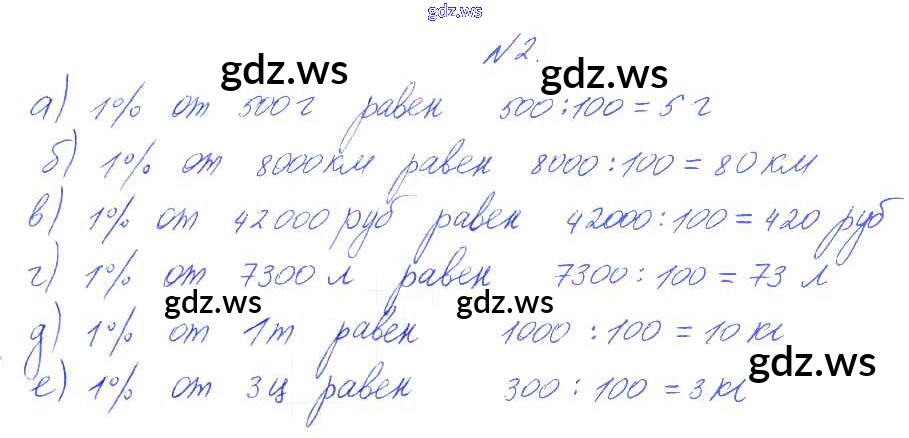 gdz.ws
N 2.
gdz.ws
а) 1% от 500 г равен 500 : 100 = 5 г
б) 1% от 8000 км равен 8000 : 100 = 80 км
в) 1% от 42 000 руб равен 42000 : 100 = 420 руб
г) 1% от 7300 л равен 7300 : 100 = 73 л
gdz.ws gdz.ws
д) 1% от 1 т равен 1000 : 100 = 10 кг
gdz.ws
е) 1% от 3 ц равен 300 : 100 = 3 кг